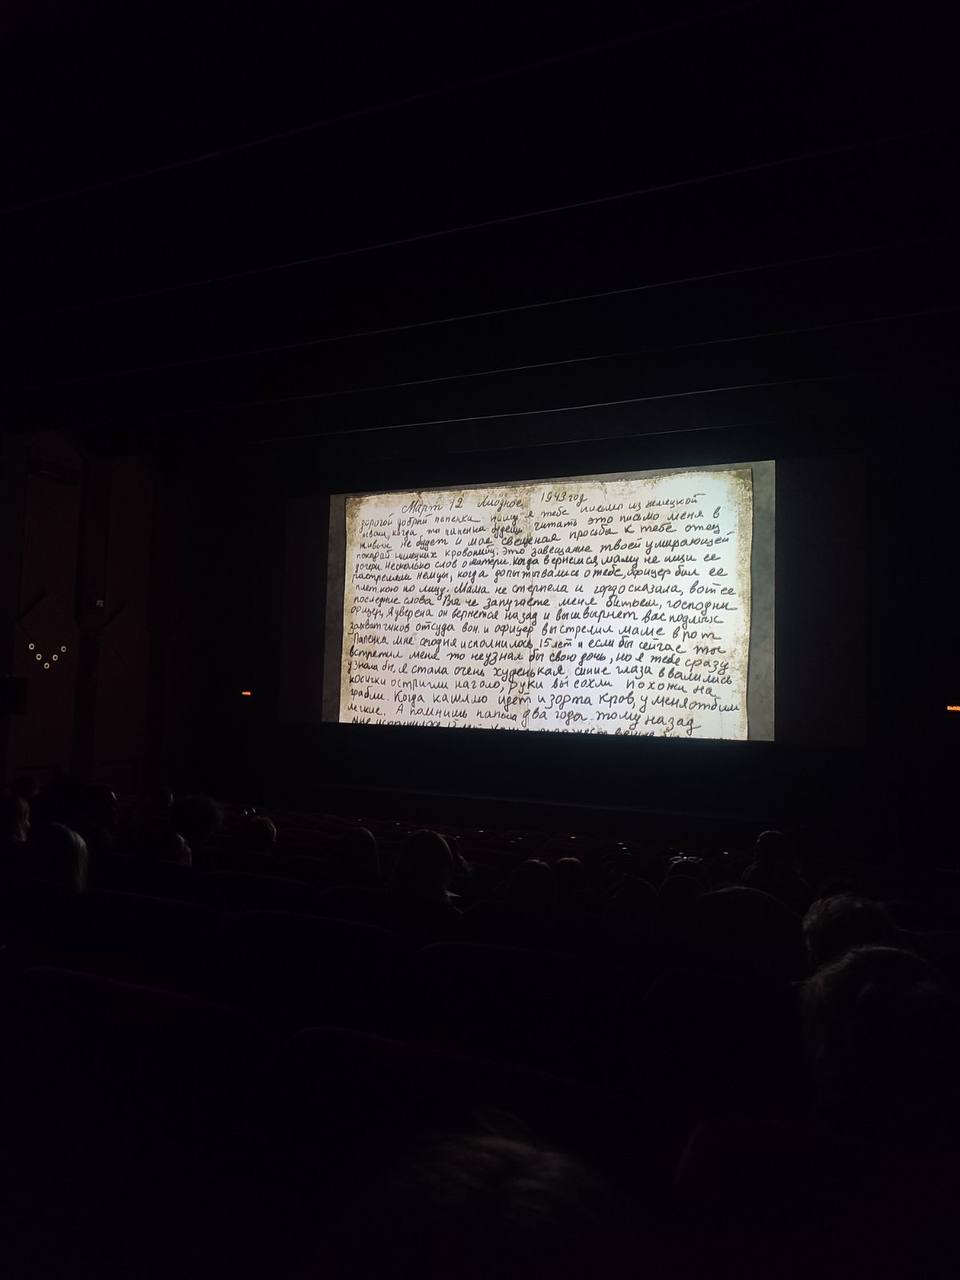 Март 12 Лиозное 1943 год
дорогой добрый папенька пишу я тебе письмо из немецкой
неволи, когда ты папенька будешь читать это письмо меня в
живых не будет и мае свещеная просьба к тебе отец
покарай немецких кровопийц. Это завещание твоей умирающей
дочери несколько слов о матери. когда вернешся, маму не ищи ее
растреляли немцы, когда допытывались о тебе, офицер бил ее
плеткою по лицу. Мама не стерпела и гордо сказала, вот ее
последние слова Вы не запугаете меня битьем, господин
офицер, Я уверена он вернется назад и вышвырнет вас подлых
захватчиков отсуда вон. и офицер выстрелил маме в рот
Папенька мне сегодня исполнилось 15 лет и если бы сейчас ты
встретил меня то неузнал бы свою дочь, но я тебе сразу
узнала бы, я стала очень худенькая, синие глаза ввалились
косички остригли наголо, руки высохли похожи на
грабли. Когда кашляю идет изорта кров, у меня отбили
легкие. А помнишь папенька два года тому назад
мне исполнилось 13 лет